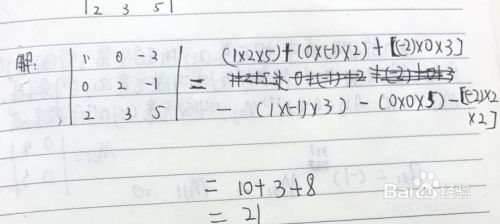 2 3 5
解: | 1 0 -2 | (1×2×5)+(0×(-1)×2)+[(-2)×0×3]
| 0 2 -1 | =
| 2 3 5 | - (1×(-1)×3) - (0×0×5) - [(-2)×2
×2]
= 10+3+8
= 21
Baidu经验